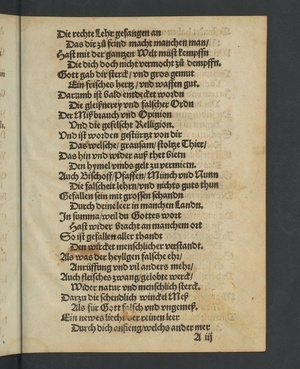 Die rechte Lehr gefangen an
Das dir zů feind macht manchen man/
Hast mit der gantzen Welt můst kempffn
Die dich doch nicht vermocht zů dempffn.
Gott gab dir sterck/ vnd gros gemut
Ein frisches hertz/ vnd waffen gut.
Darumb ist bald entdecket wordn
Die gleißnerey vnd falscher Ordn
Der Miß brauch vnd Opinion
Vnd die gefelscht Religion.
Vnd ist worden gestürtzt von dir
Das welsche/ grausam/ stoltze Thier/
Das hin vnd wider auß thet bietn
Den hymel vmbs gelt zu vermietn.
Auch Bischoff/ Pfaffen/ Münch vnd Nunn
Die falscheit lehrn/ vnd nichts guts thun
Gefallen sein mit grossen schandn
Durch deine leer in manchen Landn.
In summa/ weil du Gottes wort
Hast wider bracht an manchen ort
So ist gefallen aller thandt
Den wircket menschlicher verstandt.
Als was der heyligen falsche ehr/
Anrüffung vnd vil anders mehr/
Auch fleisches zwang/ gelobte werck/
Wider natur vnd menschlich sterck.
Dartzu die schendlich winckel Meß
Als für Gott falsch vnd vngemeß.
Ein newes liecht der reinen leer
Durch dich anfieng/ welchs ander mer
A iij